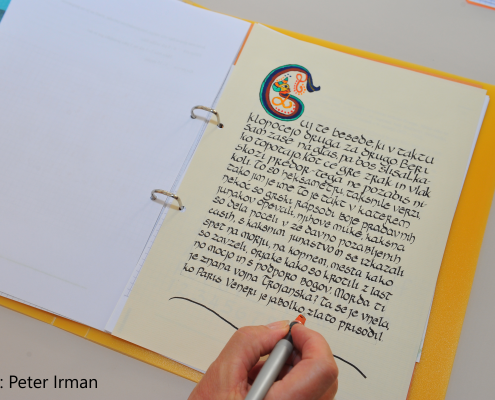 Čuj te besede, ki v taktu
klopočejo druga za drugo. Beri
sam zase na glas, pa boš slišal ka
ko topotajo, kot če gre zrak in vlak
skozi predor - tega ne pozabiš ni-
koli. To so heksametri, takšnile verzi,
tako jim je ime. To je takt v katerem
nekoč so grški rapsodi boje pradavnih
junakov opevali, njihove muke, kakšna
so dela počeli v že davno pozabljenih
časih, s kakšnim junaštvom so se izkazali
spet na morju, na kopnem, mesta kako
so zavzeli, orjake kako so krotili z last
no močjo in s podporo bogov! Morda ti
je znana vojna trojanska? Ta se je vnela,
ko Paris Veneri je jabolko zlato prisodil
: Peter Irman